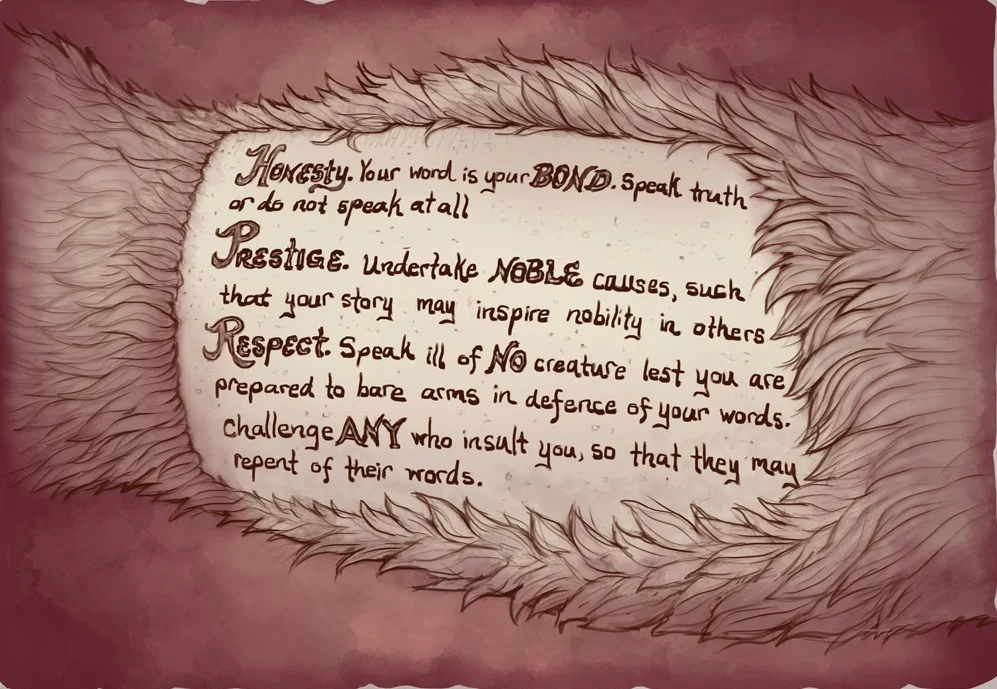 Honesty. Your word is your BOND. Speak truth
or do not speak at all
Prestige. Undertake NOBLE causes, such
that your story may inspire nobility in others
Respect. Speak ill of NO creature lest you are
prepared to bare arms in defence of your words.
challenge ANY who insult you, so that they may
repent of their words.